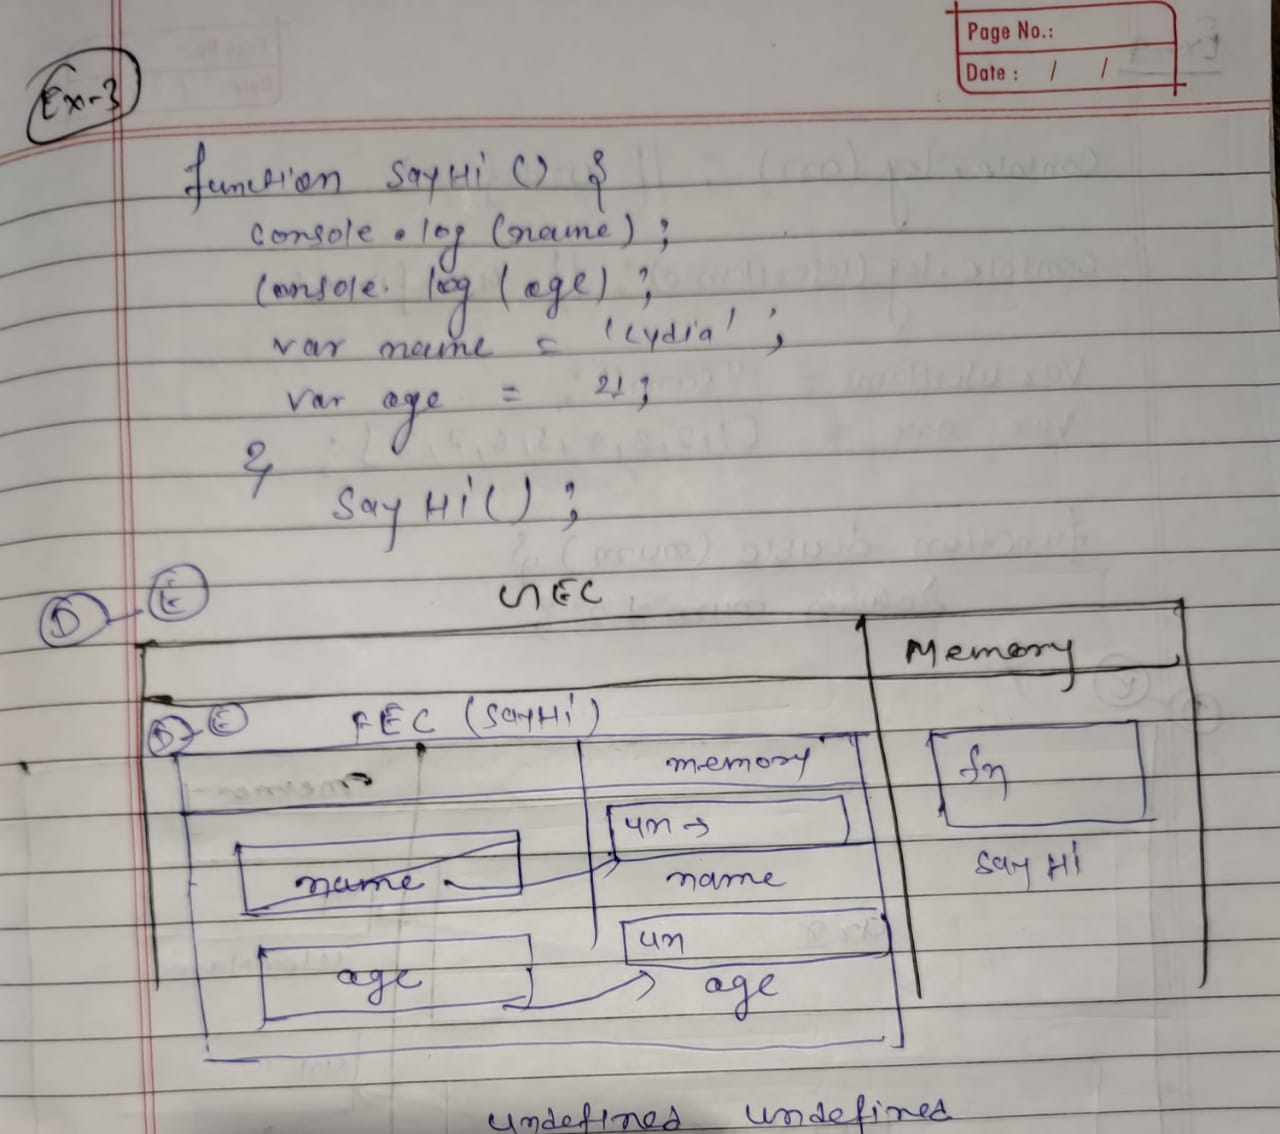 Page No.:
Date : / /
Ex-3
function SayHi () {
console.log (name);
console.log (age);
var name = 'Lydia';
var age = 21;
}
SayHi();
D - E
GEC
Memory
D - E
FEC (SayHi)
memory
fn
un →
name
name
SayHi
un
age
age
undefined undefined